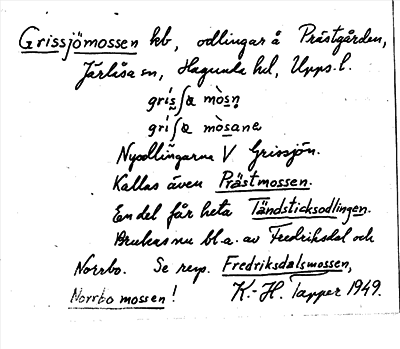 Grissjömossen kb, odlingar å Prästgården,
Järlåsa sn, Hagunda hd, Upps. l.
grìs∫ø mòsn̥
grì∫ø mòsane
Nyodlingarna V Grissjön.
Kallas även Prästmossen.
En del får heta Tändsticksodlingen.
Brukas nu bl.a. av Fredriksdal och
Norrbo. Se resp. Fredriksdalsmossen,
Norrbo mossen! K.-H. Tapper 1949.